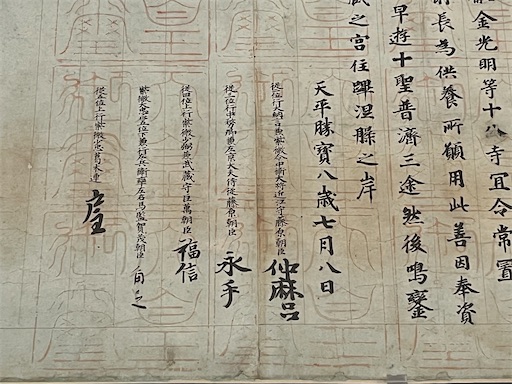 金光明等十八寺宜令常置
前長為供養所願用此善因奉資
早遊十聖普濟三途然後鳴鑾
蔵之宮住蹕涅槃之岸
天平勝寶八歳七月八日
從二位行大納言兼紫微令中衛大将近江守藤原朝臣仲麻呂
從三位行中務卿兼左京大夫侍從藤原朝臣永手
從四位上行紫微少弼兼武蔵守巨萬朝臣福信
紫微大忠正五位下兼行左兵衛率左右馬監賀茂朝臣角足
從五位上行紫微少忠葛木連戸主